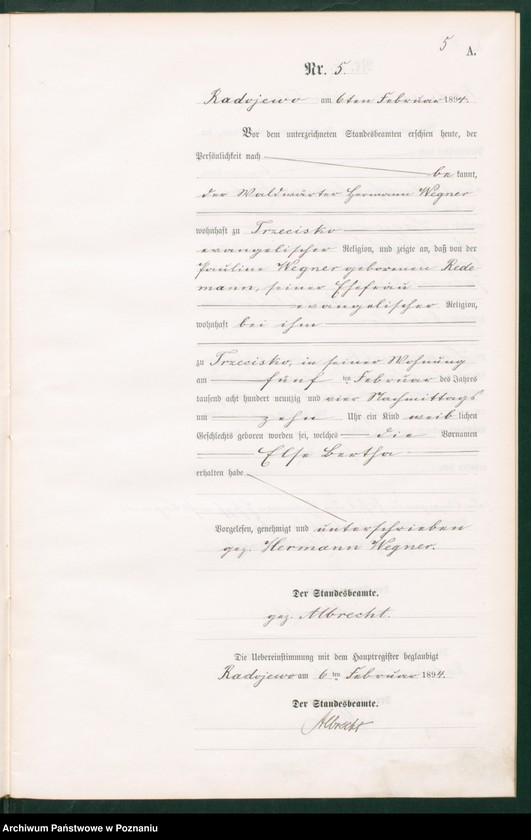 5
A.
Nr. 5.
Radojewo am 6ten Februar 1894.
Vor dem unterzeichneten Standesbeamten erschien heute, der
Persönlichkeit nach
be kannt,
der Waldwärter Hermann Wegner
wohnhaft zu Trzecisko
evangelischer Religion, und zeigte an, daß von der
Pauline Wegner geborenen Rede
mann, seiner Ehefrau
evangelischer Religion,
wohnhaft bei ihm
zu Trzecisko, in seiner Wohnung
am fünf ten Februar des Jahres
tausend acht hundert neunzig und vier Nachmittags
um zehn Uhr ein Kind weib lichen
Geschlechts geboren worden sei, welches die Vornamen
Else Bertha
erhalten habe
Vorgelesen, genehmigt und unterschrieben
gez. Hermann Wegner.
Der Standesbeamte.
gez. Albrecht.
Die Uebereinstimmung mit dem Hauptregister beglaubigt
Radojewo am 6 ten Februar 1894.
Der Standesbeamte.
Albrecht
Archiwum Państwowe w Poznaniu